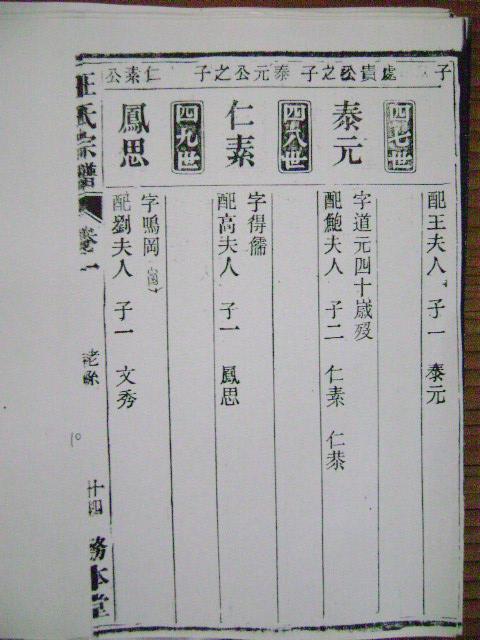 子
配王夫人 子一 泰元
處貴公之子
四七世
泰元
字道元四十歲歿
配鮑夫人 子二 仁素 仁恭
泰元公之子
四八世
仁素
字得儒
配高夫人 子一 鳳思
仁素公
四九世
鳳思
字鳴岡
配劉夫人 子一 文秀
氏宗譜 卷一
十四
務本堂
10